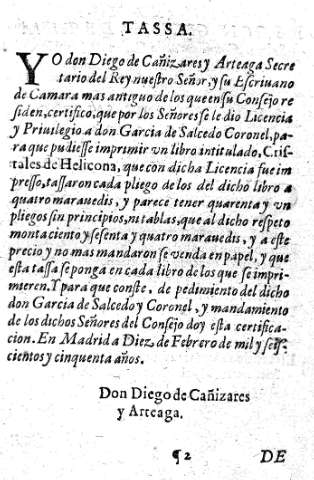 TASSA.
YO don Diego de Cañizares y Arteaga Secre
tario del Rey nuestro Señor, y su Escriuano
de Camara mas antiguo de los que en su Consejo re
siden, certifico, que por los Señores se le dio Licencia
y Priuilegio a don Garcia de Salcedo Coronel, pa-
ra que pudiesse imprimir vn libro intitulado, Cris-
tales de Helicona, que con dicha Licencia fue im
presso, tassaron cada pliego de los del dicho libro a
quatro marauedis, y parece tener quarenta y vn
pliegos sin principios, ni tablas, que al dicho respeto
monta ciento y sesenta y quatro marauedis, y a este
precio y no mas mandaron se venda en papel, y que
esta tassa se ponga en cada libro de los que se impri-
mieren. Y para que conste, de pedimiento del dicho
don Garcia de Salcedo y Coronel, y mandamiento
de los dichos Señores del Consejo doy esta certifica-
cion. En Madrid a Diez de Febrero de mil y seis-
cientos y cinquenta años.
Don Diego de Cañizares
y Arteaga.
¶2 DE